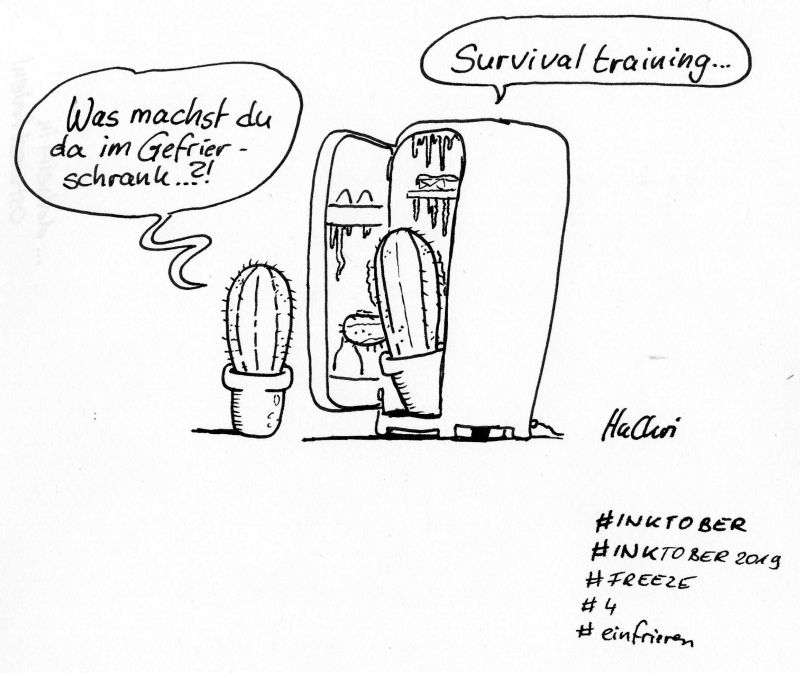 Was machst du
da im Gefrier-
schrank...?!
Survival training...
HaChri
#INKTOBER
#INKTOBER 2019
#FREEZE
#4
#einfrieren